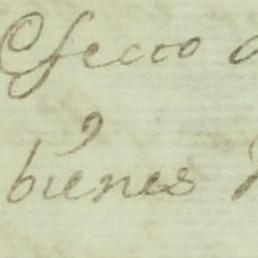 Efecto
bienes